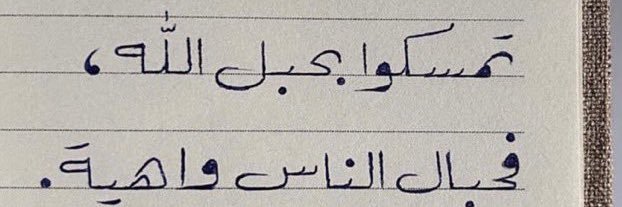 تمسكوا بحبل الله،
فحبال الناس واهية.